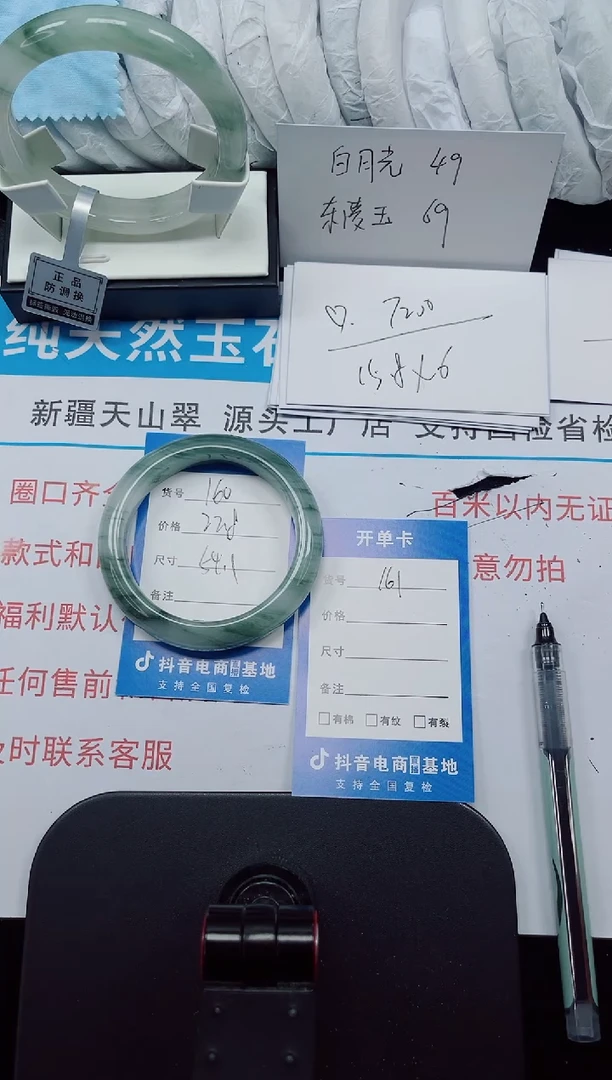 白月光 49
东菱玉 69
正品
防调换
7200
158×6
纯天然玉石
新疆天山翠 源头工厂店 支持国检省检
圈口齐全
百米以内无证
款式和
意勿拍
福利默认
任何售前
及时联系客服
货号 160
价格
尺寸 54.1
备注
抖音电商基地
支持全国复检
开单卡
货号 161
价格
尺寸
备注
有棉 有纹 有裂
抖音电商基地
支持全国复检